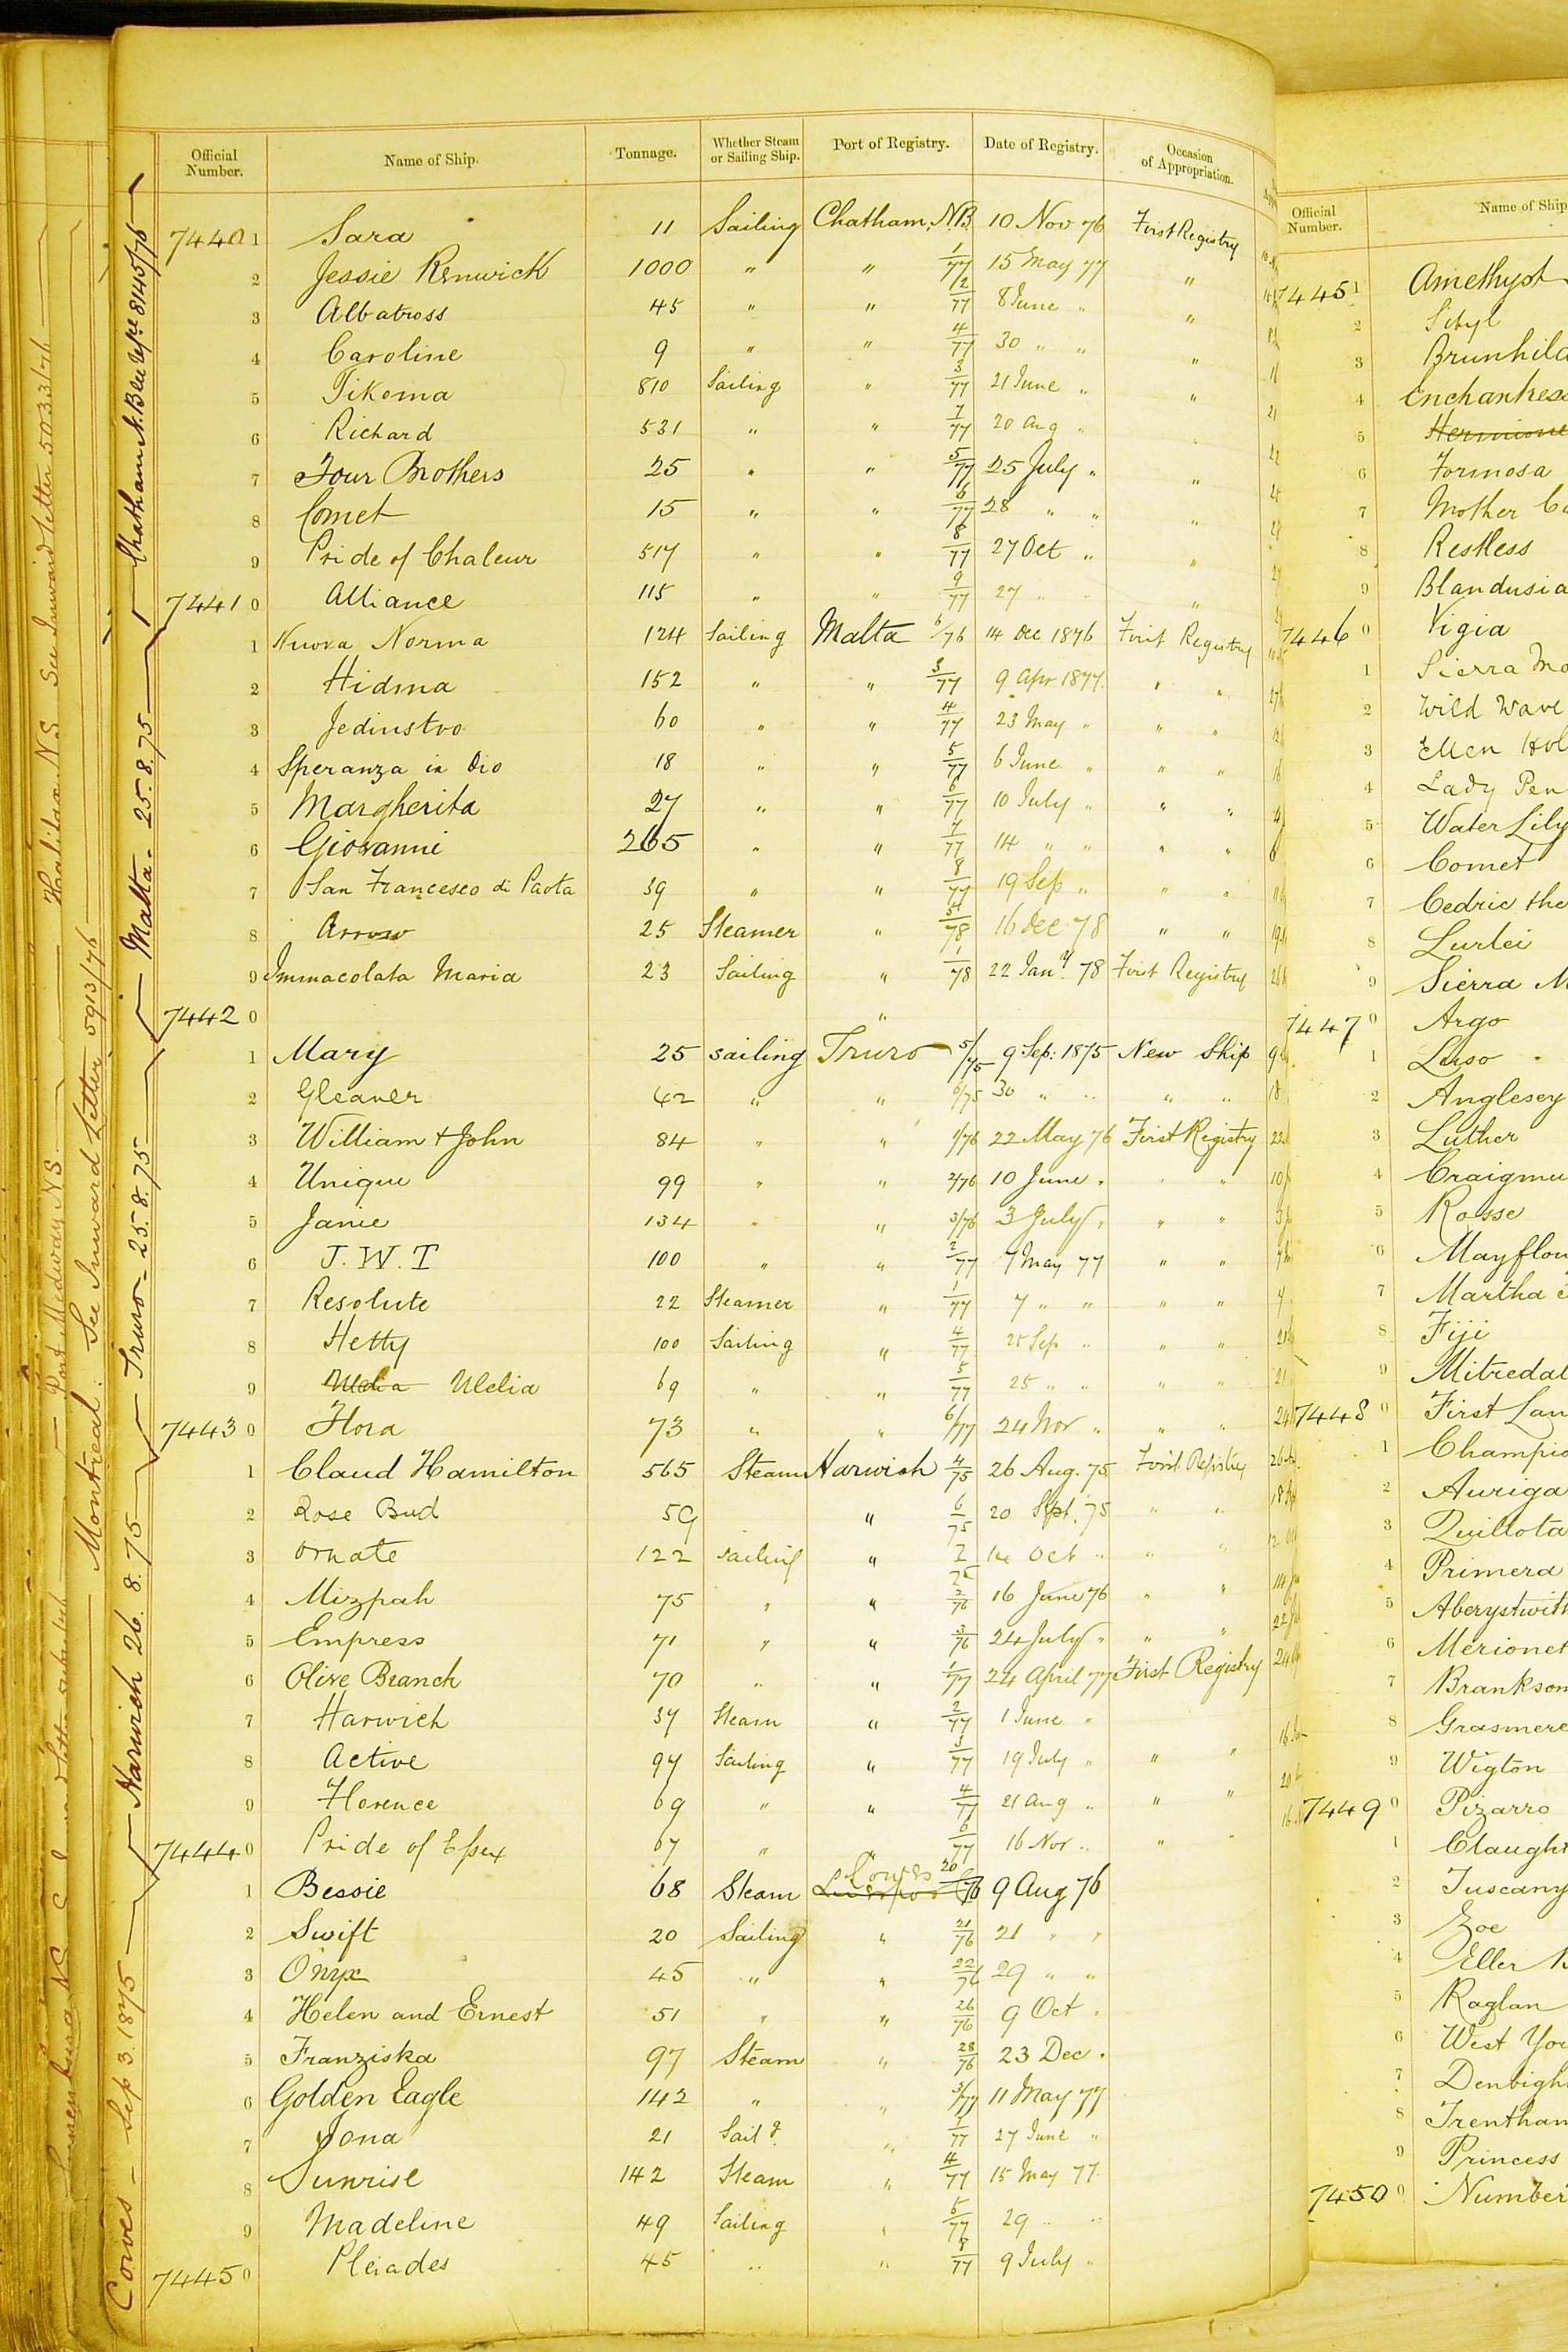 Official Number. Name of Ship. Tonnage. Whether Steam or Sailing Ship. Port of Registry. Date of Registry. Occasion of Appropriation.
7440 1 Sara 11 Sailing Chatham, N.B. 1/77 10 Nov 76 First Registry
2 Jessie Renwick 1000 " " 2/77 15 May 77 "
3 Albatross 45 " " 4/77 8 June " "
4 Caroline 9 " " 3/77 30 " " "
5 Tikoma 810 Sailing " 21 June " "
6 Richard 531 " " 7/77 20 Aug "
7 Four Brothers 25 " " 5/77 25 July " "
8 Comet 15 " " 6/77 28 " " "
9 Pride of Chaleur 517 " " 8/77 27 Oct " "
7441 0 Alliance 115 " " 9/77 27 " " "
1 Nuova Norma 124 Sailing Malta 6/76 14 Dec 1876 First Registry
2 Hidma 152 " " 3/77 9 Apr 1877 " "
3 Jedinstvo 60 " " 4/77 23 May " " "
4 Speranza in Dio 18 " " 5/77 6 June " " "
5 Margherita 27 " " 6/77 10 July " " "
6 Giovanni 265 " " 7/77 14 " " " "
7 San Francesco di Paola 39 " " 8/77 19 Sep " " "
8 Arrow 25 Steamer " 5/78 16 Dec 78 " "
9 Immacolata Maria 23 Sailing " 1/78 22 Jany 78 First Registry
7442 0 "
1 Mary 25 Sailing Truro 5/75 9 Sep: 1875 New Ship
2 Gleaner 42 " " 6/75 30 " " " "
3 William & John 84 " " 1/76 22 May 76 First Registry
4 Unique 99 " " 2/76 10 June " " "
5 Janie 134 " " 3/76 3 July " " "
6 J. W. T 100 " " 2/77 7 May 77 " "
7 Resolute 22 Steamer " 1/77 7 " " " "
8 Hetty 100 Sailing " 4/77 25 Sep " " "
9 Ulelia 69 " " 5/77 25 " " " "
7443 0 Flora 73 " " 6/77 24 Nov " " "
1 Claud Hamilton 565 Steam Harwich 4/75 26 Aug. 75 First Registry
2 Rose Bud 59 " 6/75 20 Sept. 75 " "
3 Ornate 122 Sailing " 7/75 Oct " " "
4 Mizpah 75 " " 2/76 16 June 76 " "
5 Empress 71 " " 3/76 24 July " " "
6 Olive Branch 70 " " 1/77 24 April 77 First Registry
7 Harwich 37 Steam " 2/77 1 June "
8 Active 97 Sailing " 3/77 19 July " " "
9 Florence 69 " " 4/77 21 Aug " " "
7444 0 Pride of Essex 67 " " 6/77 16 Nov " " "
1 Bessie 68 Steam Liverpool Cowes 20/76 9 Aug 76
2 Swift 20 Sailing " 21/76 21 " "
3 Onyx 45 " " 22/76 29 " "
4 Helen and Ernest 51 " " 26/76 9 Oct "
5 Franziska 97 Steam " 28/76 23 Dec "
6 Golden Eagle 142 " " 3/77 11 May 77
7 Jona 21 Sailg " 27 June "
8 Sunrise 142 Steam " 4/77 15 May 77
9 Madeline 49 Sailing " 5/77 29 " "
7445 0 Pleiades 45 " " 8/77 9 July "
Chatham N.B.
Malta - 25.8.75
Truro - 25.8.75
Harwich 26.8.75
Cowes - Sep 3. 1875
Montreal: See Inward Letter 5913/76
Port Medway N.S.
See Inward Letter 5033/76
Official Number. Name of Ship
7445 1 Amethyst
2 Sibyl
3 Brunhild
4 Enchantress
5 Hermione
6 Formosa
7 Mother
8 Restless
9 Blandusia
7446 0 Vigia
1 Sierra
2 Wild Wave
3 Ellen
4 Lady
5 Water Lily
6 Comet
7 Cedric the
8 Lurlei
9 Sierra
7447 0 Argo
1 Luso
2 Anglesey
3 Luther
4 Craigmu
5 Rosse
6 Mayflow
7 Martha
8 Fiji
9 Mitredal
7448 0 First Lan
1 Champio
2 Auriga
3 Quillota
4 Primera
5 Aberystwith
6 Merionet
7 Branksom
8 Grasmere
9 Wigton
7449 0 Pizarro
1 Claught
2 Tuscany
3 Zoe
4 Ellen
5 Raglan
6 West Yo
7 Denbigh
8 Trentham
9 Princess
7450 0 Number